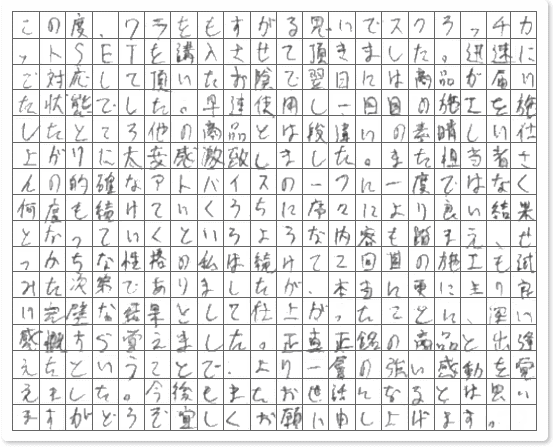 この度、ワラをもすがる思いでスクラッチカ
ットSETを購入させて頂きました。迅速に
ご対応して頂いたお陰で翌日には商品が届い
た状態でした。早速使用し一回目の施工を施
したところ他の商品とは段違いの素晴しい仕
上がりに大変感激致しました。また担当者さ
んの的確なアドバイスの一つに一度ではなく
何度も続けていくうちに序々により良い結果
となっていくというような内容も踏まえ、せ
っかちな性格の私は続けて2回目の施工も試
みた次第でありましたが、本当に更により良
い完璧な結果として仕上がったことに、深い
感慨すら覚えました。正真正銘の商品と出逢
えたということで、より一層の強い感動を覚
えました。今後もまたお世話になるとは思い
ますがどうぞ宜しくお願い申し上げます。